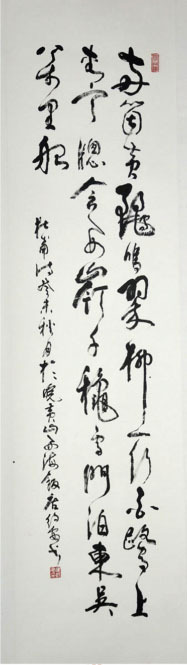 兩箇黃鸝鳴翠柳一行白鷺上
青天窗含西嶺千穐雪門泊東吳
萬里船
杜甫詩癸未秋月於